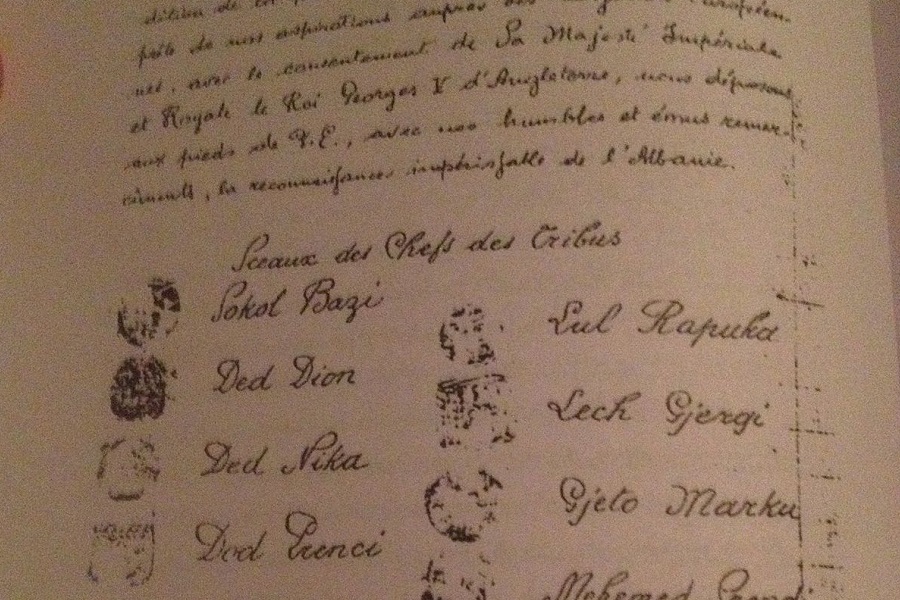 de nos aspirations auprès des
avec le consentement de Sa Majesté Impériale
et Royale le Roi Georges V d'Angleterre, nous déposons
aux pieds de V.E., avec nos humbles et émus remer-
ciments, la reconnaissance impérissable de l'Albanie.
Sceaux des Chefs des Tribus
Sokol Bazi
Lul Rapuka
Ded Dion
Lech Gjergi
Ded Nika
Gjeto Marku
Dod Prenci
Mehemed